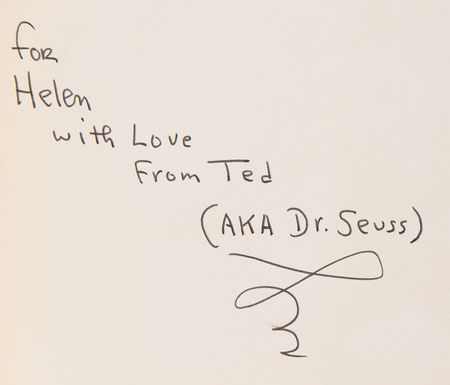 for
Helen
with Love
From Ted
(AKA Dr. Seuss)